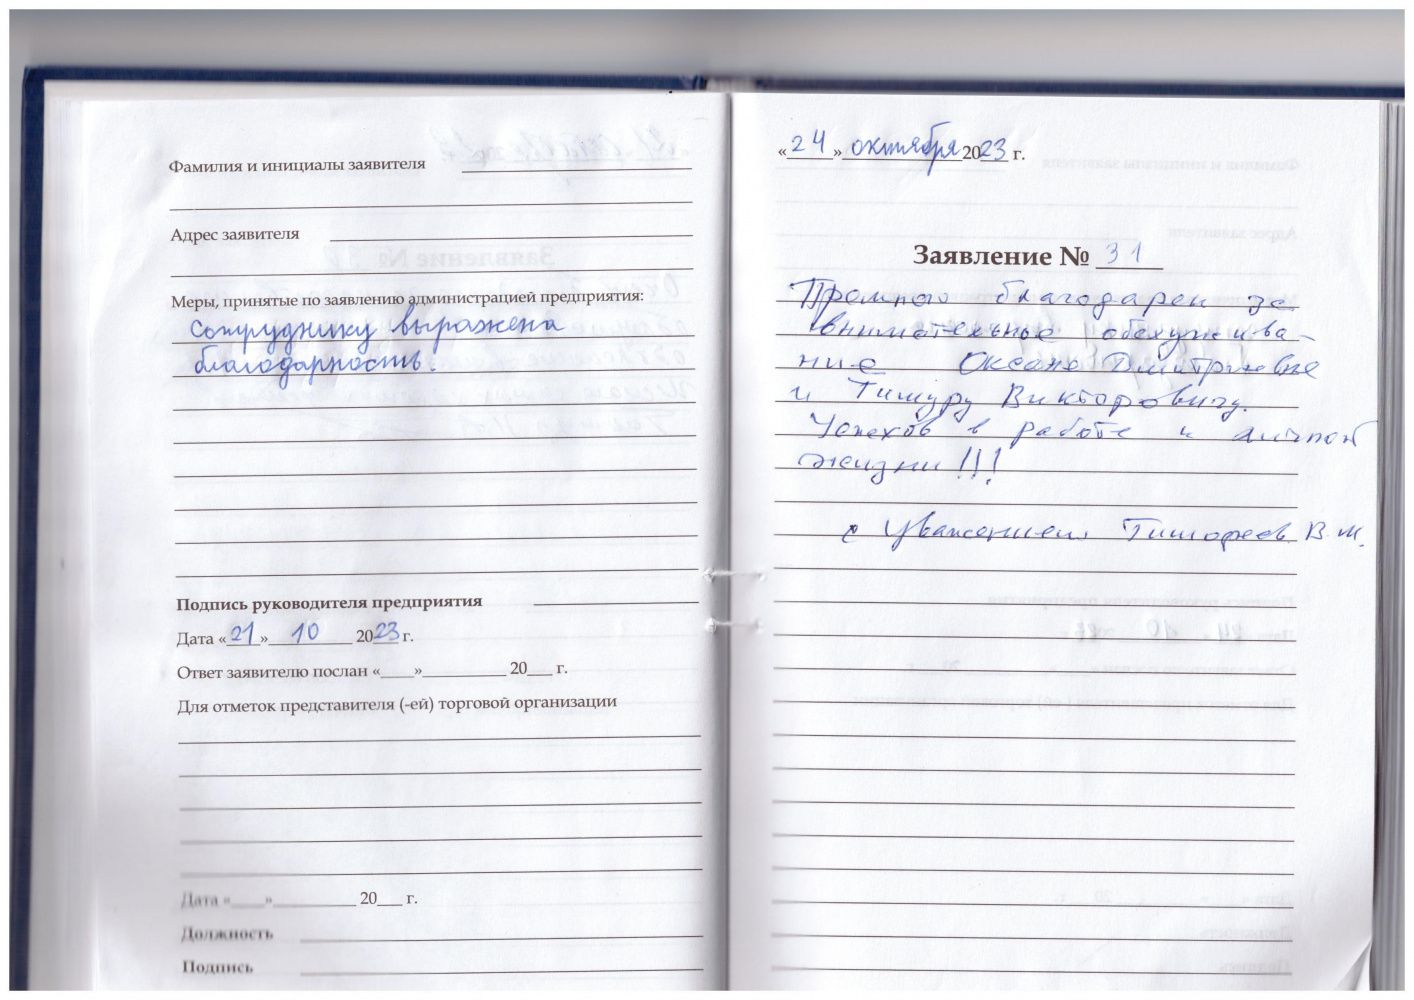 Фамилия и инициалы заявителя
Адрес заявителя
Меры, принятые по заявлению администрацией предприятия:
сотруднику выражена
благодарность!
Подпись руководителя предприятия
Дата «21» 10 2023 г.
Ответ заявителю послан «____»__________ 20___ г.
Для отметок представителя (-ей) торговой организации
Дата «____»__________ 20___ г.
Должность
Подпись
«24» октября 2023 г.
Заявление № 31
Премного благодарен за
внимательное обслужива-
ние Оксане Дмитриевне
и Тимуру Викторовичу.
Успехов в работе и личной
жизни!!!
с уважением Тимофеев В.М.